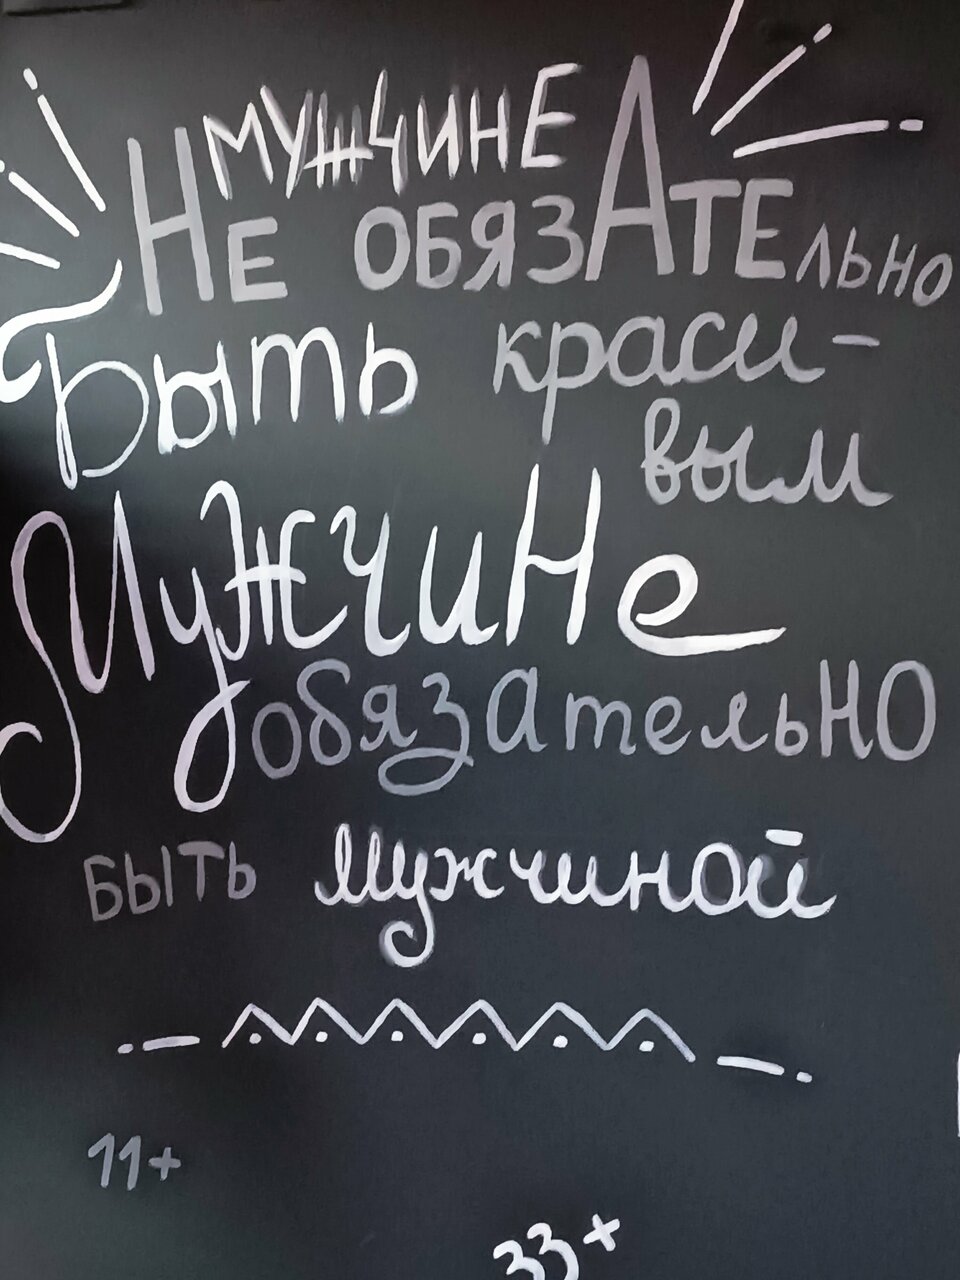 МУЖЧИНЕ
НЕ ОБЯЗАТЕЛЬНО
Быть краси-
вым
Мужчине
обязательно
БЫТЬ мужчиной
11+
33+